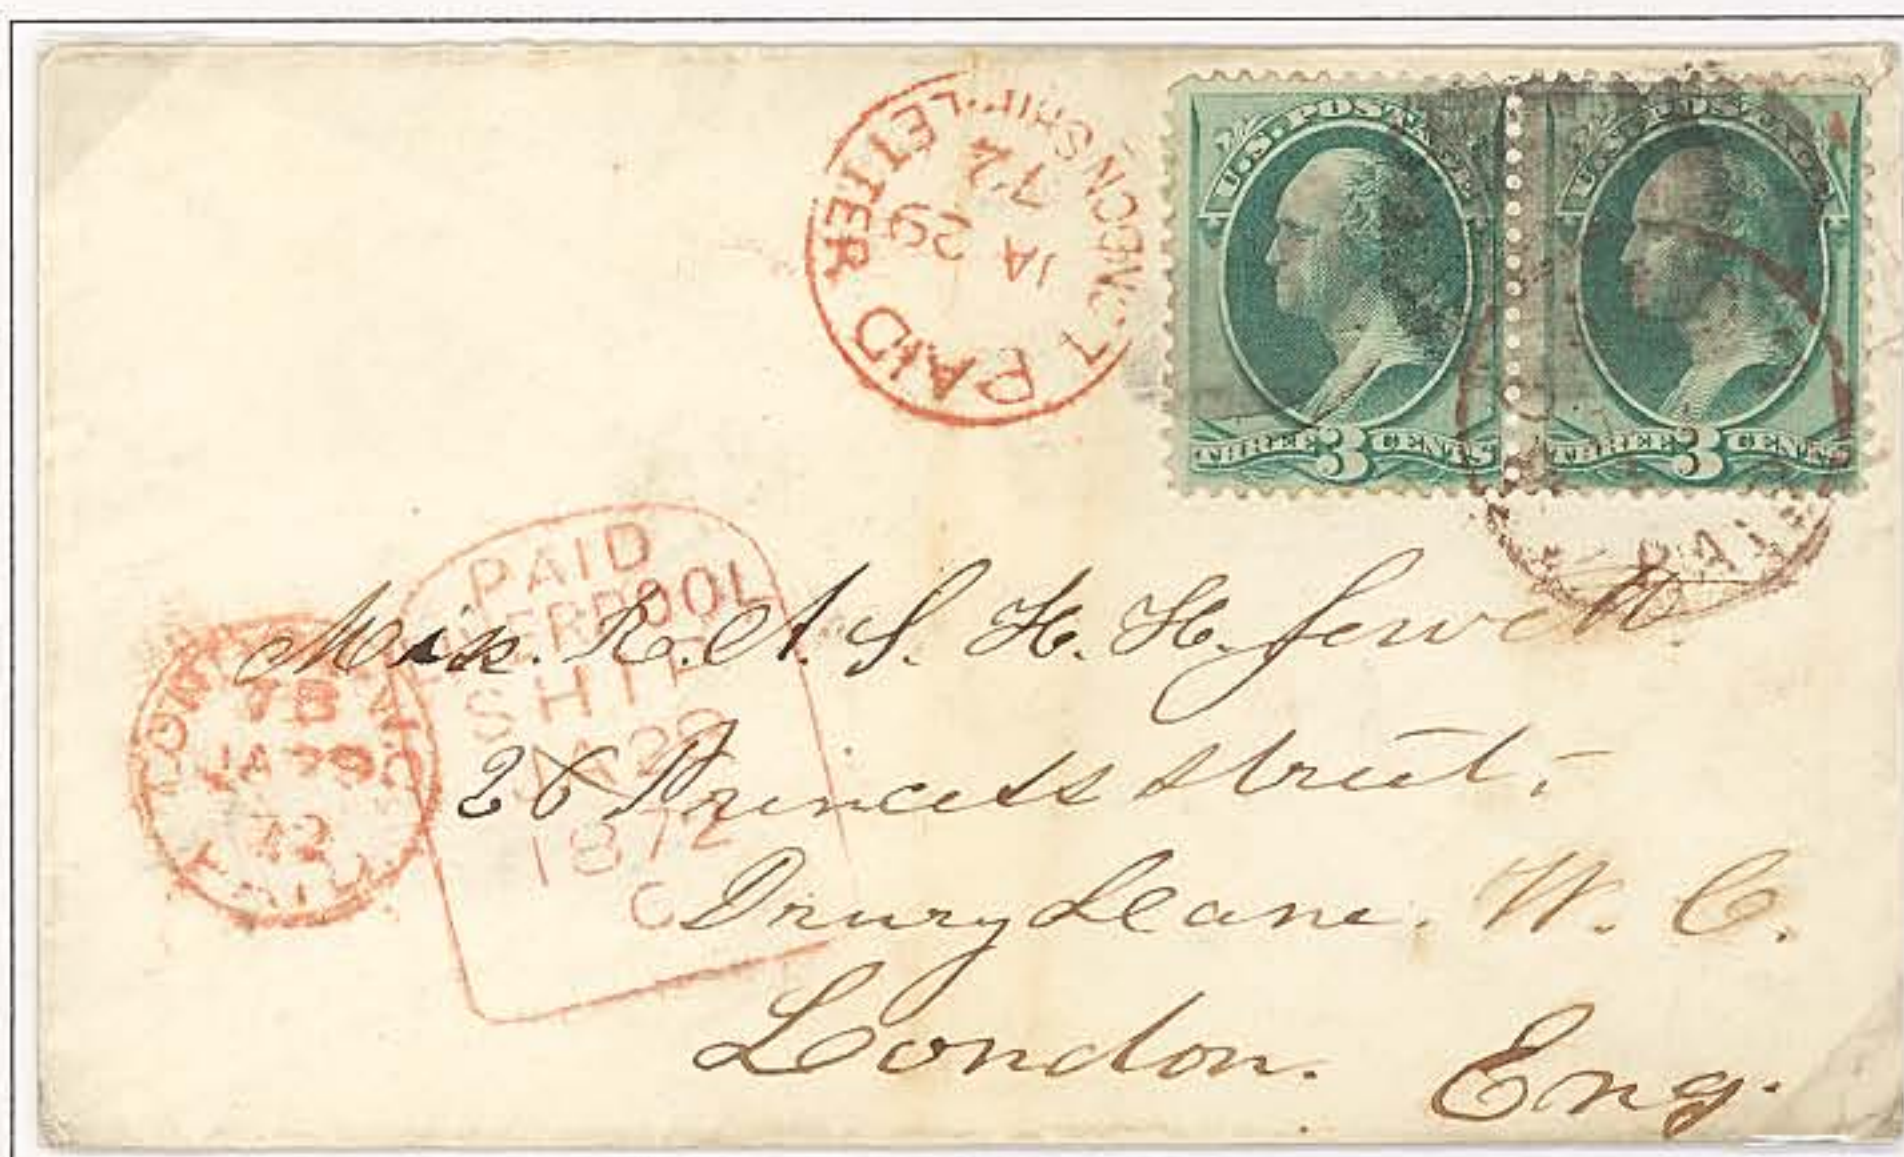 PAID
LONDON SHIP LETTER
JA 29
72
U.S. POSTAGE
THREE 3 CENTS
U.S. POSTAGE
THREE 3 CENTS
PAID
PAID
LIVERPOOL
SHIP
1872
C
LONDON W.C
7B
JA 29
72
Miss. R. A. S. H. H. Jewett
26 Princess street,
Drury Lane. W. C.
London. Eng.